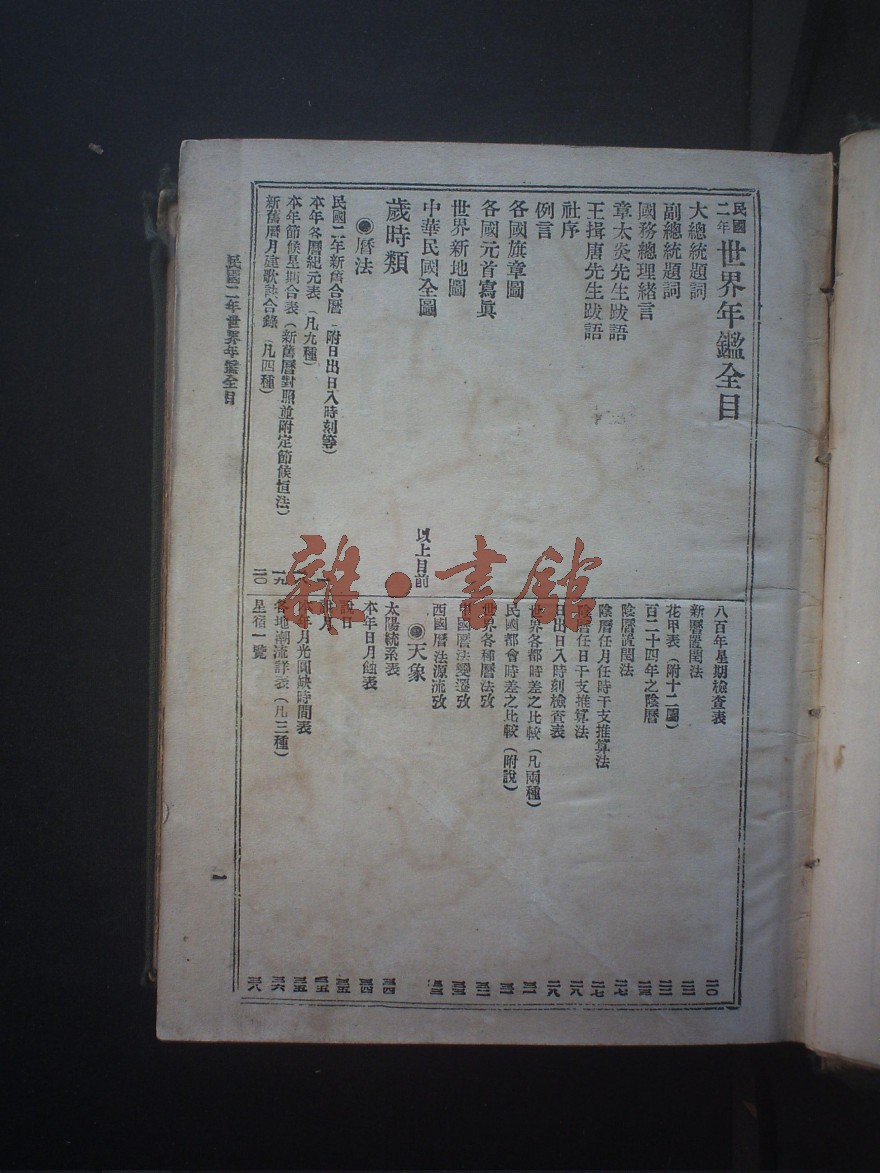 民國二年世界年鑑全目
大總統題詞
副總統題詞
國務總理緒言
章太炎先生跋語
王揖唐先生跋語
社序
例言
各國旗章圖
各國元首寫眞
世界新地圖
中華民國全圖
以上目前
歲時類
◉曆法
民國二年新舊合曆(附日出日入時刻等)
本年各曆紀元表(凡九種)
本年節候星期合表(新舊曆對照並附定節候恒法)
一九
新舊曆月建歌訣合錄(凡四種)
二〇
八百年星期檢查表
二〇
新曆置閏法
花甲表(附十二屬)
百二十四年之陰曆
陰曆置閏法
陰曆任月任時干支推算法
二七
陰曆任日干支推算法
二八
日出日入時刻檢查表
二八
世界各都時差之比較(凡兩種)
民國都會時差之比較(附說)
世界各種曆法攷
中國曆法變遷攷
西國曆法源流攷
◉天象
太陽統系表
本年日月蝕表
說日
說月
本年月光圓缺時間表
各地潮流詳表(凡三種)
星宿一覽
民國二年世界年鑑全目
一
雜·書館